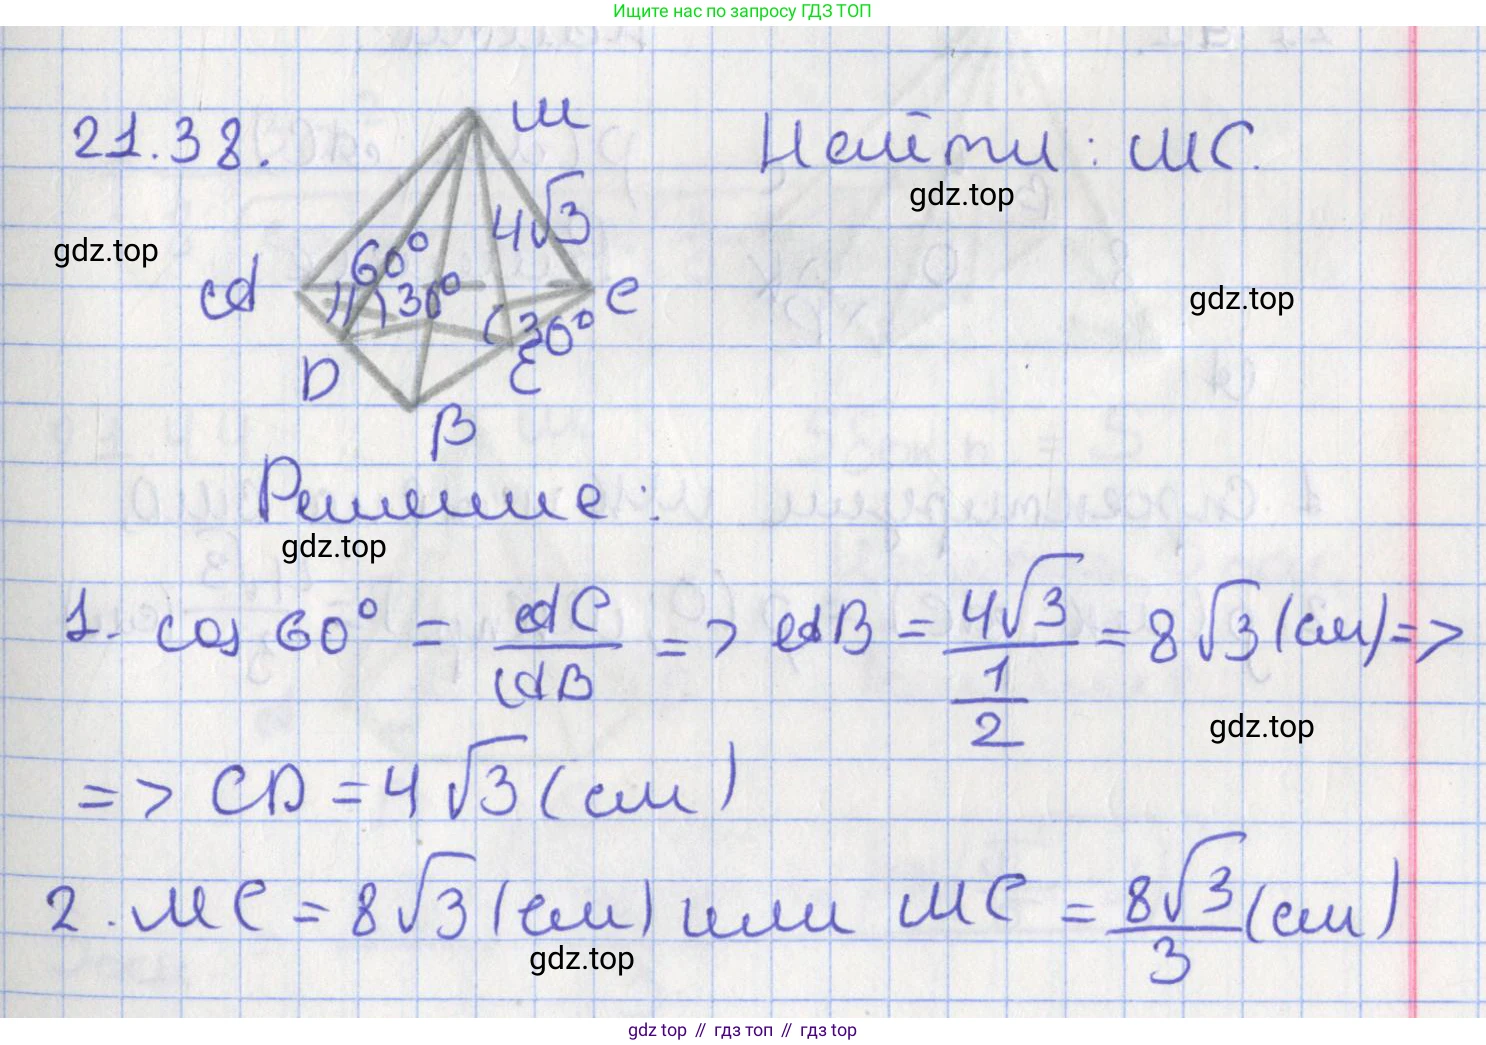 Ищите нас по запросу ГДЗ ТОП
21.38.
M
Найти: MC.
gdz.top
4√3
gdz.top
60°
A
30°
C
gdz.top
30°
D
E
B
Решение:
gdz.top
1. cos 60° = AC/AB => AB = 4√3/(1/2) = 8√3 (см) =>
gdz.top
=> CD = 4√3 (см)
2. MC = 8√3 (см) или MC = 8√3/3 (см)
gdz.top
gdz top // гдз топ // gdz top